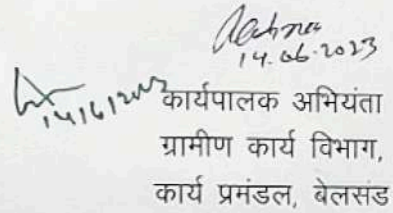 14.06.2023
14/6/2023
कार्यपालक अभियंता
ग्रामीण कार्य विभाग,
कार्य प्रमंडल, बेलसंड